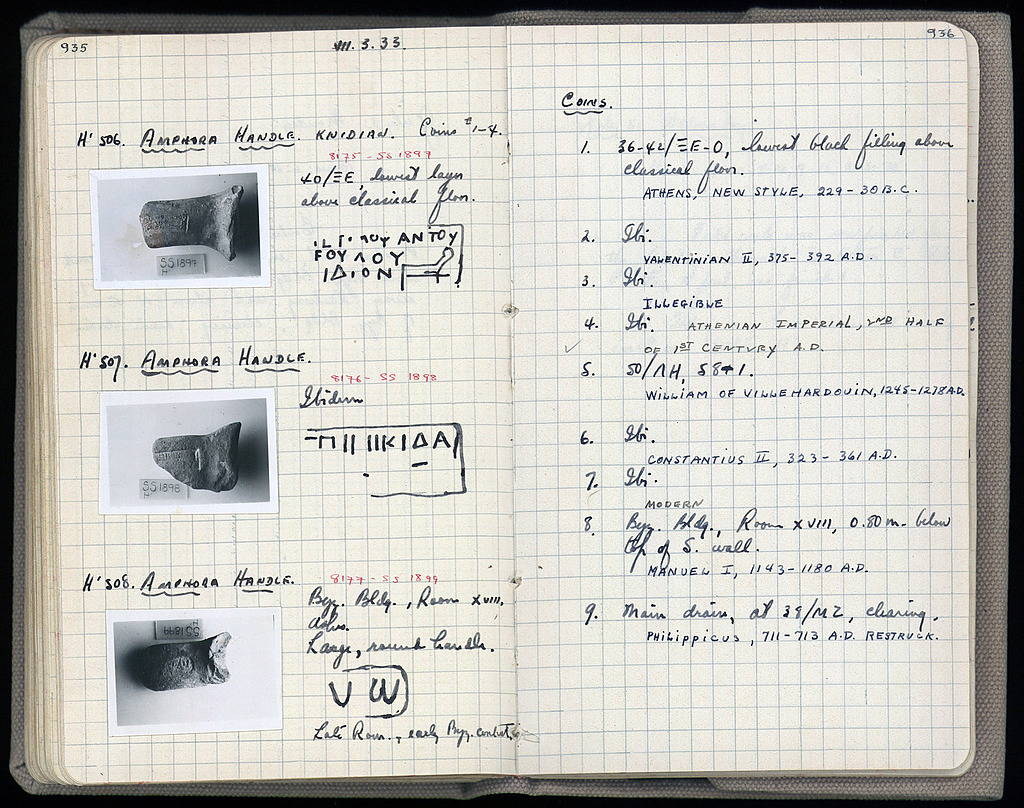 935
III.3.33.
H' 506. AMPHORA HANDLE. KNIDIAN. Coins #1-4.
8175 - SS 1897
40/ΞE, lowest layer
above classical floor.
ΑΝΤΟΥ
ΓΟΥΛΟΥ
ΙΔΙΟΝ
SS1897
H'507. AMPHORA HANDLE.
8176 - SS 1898
Ibidem
ΚΙΔΑ
SS1898
H
H'508. AMPHORA HANDLE.
8177 - SS 1899
Byz. Bldg., Room XVIII,
ashes.
Large, round handle.
SS1899
H
Late Rom., early Byz. context.
936
COINS.
1. 36-42/ΞE-O, lowest black filling above
classical floor.
ATHENS, NEW STYLE, 229-30 B.C.
2. Ibi.
VALENTINIAN II, 375-392 A.D.
3. Ibi.
ILLEGIBLE
4. Ibi. ATHENIAN IMPERIAL, 2ND HALF
OF 1ST CENTURY A.D.
5. 50/ΛH, S 8+1.
WILLIAM OF VILLEHARDOUIN, 1245-1278 A.D.
6. Ibi.
CONSTANTIUS II, 323-361 A.D.
7. Ibi.
MODERN
8. Byz. Bldg., Room XVIII, 0.80 m. below
top of S. wall.
MANUEL I, 1143-1180 A.D.
9. Main drain, at 39/MZ, clearing.
PHILIPPICUS, 711-713 A.D. RESTRUCK.